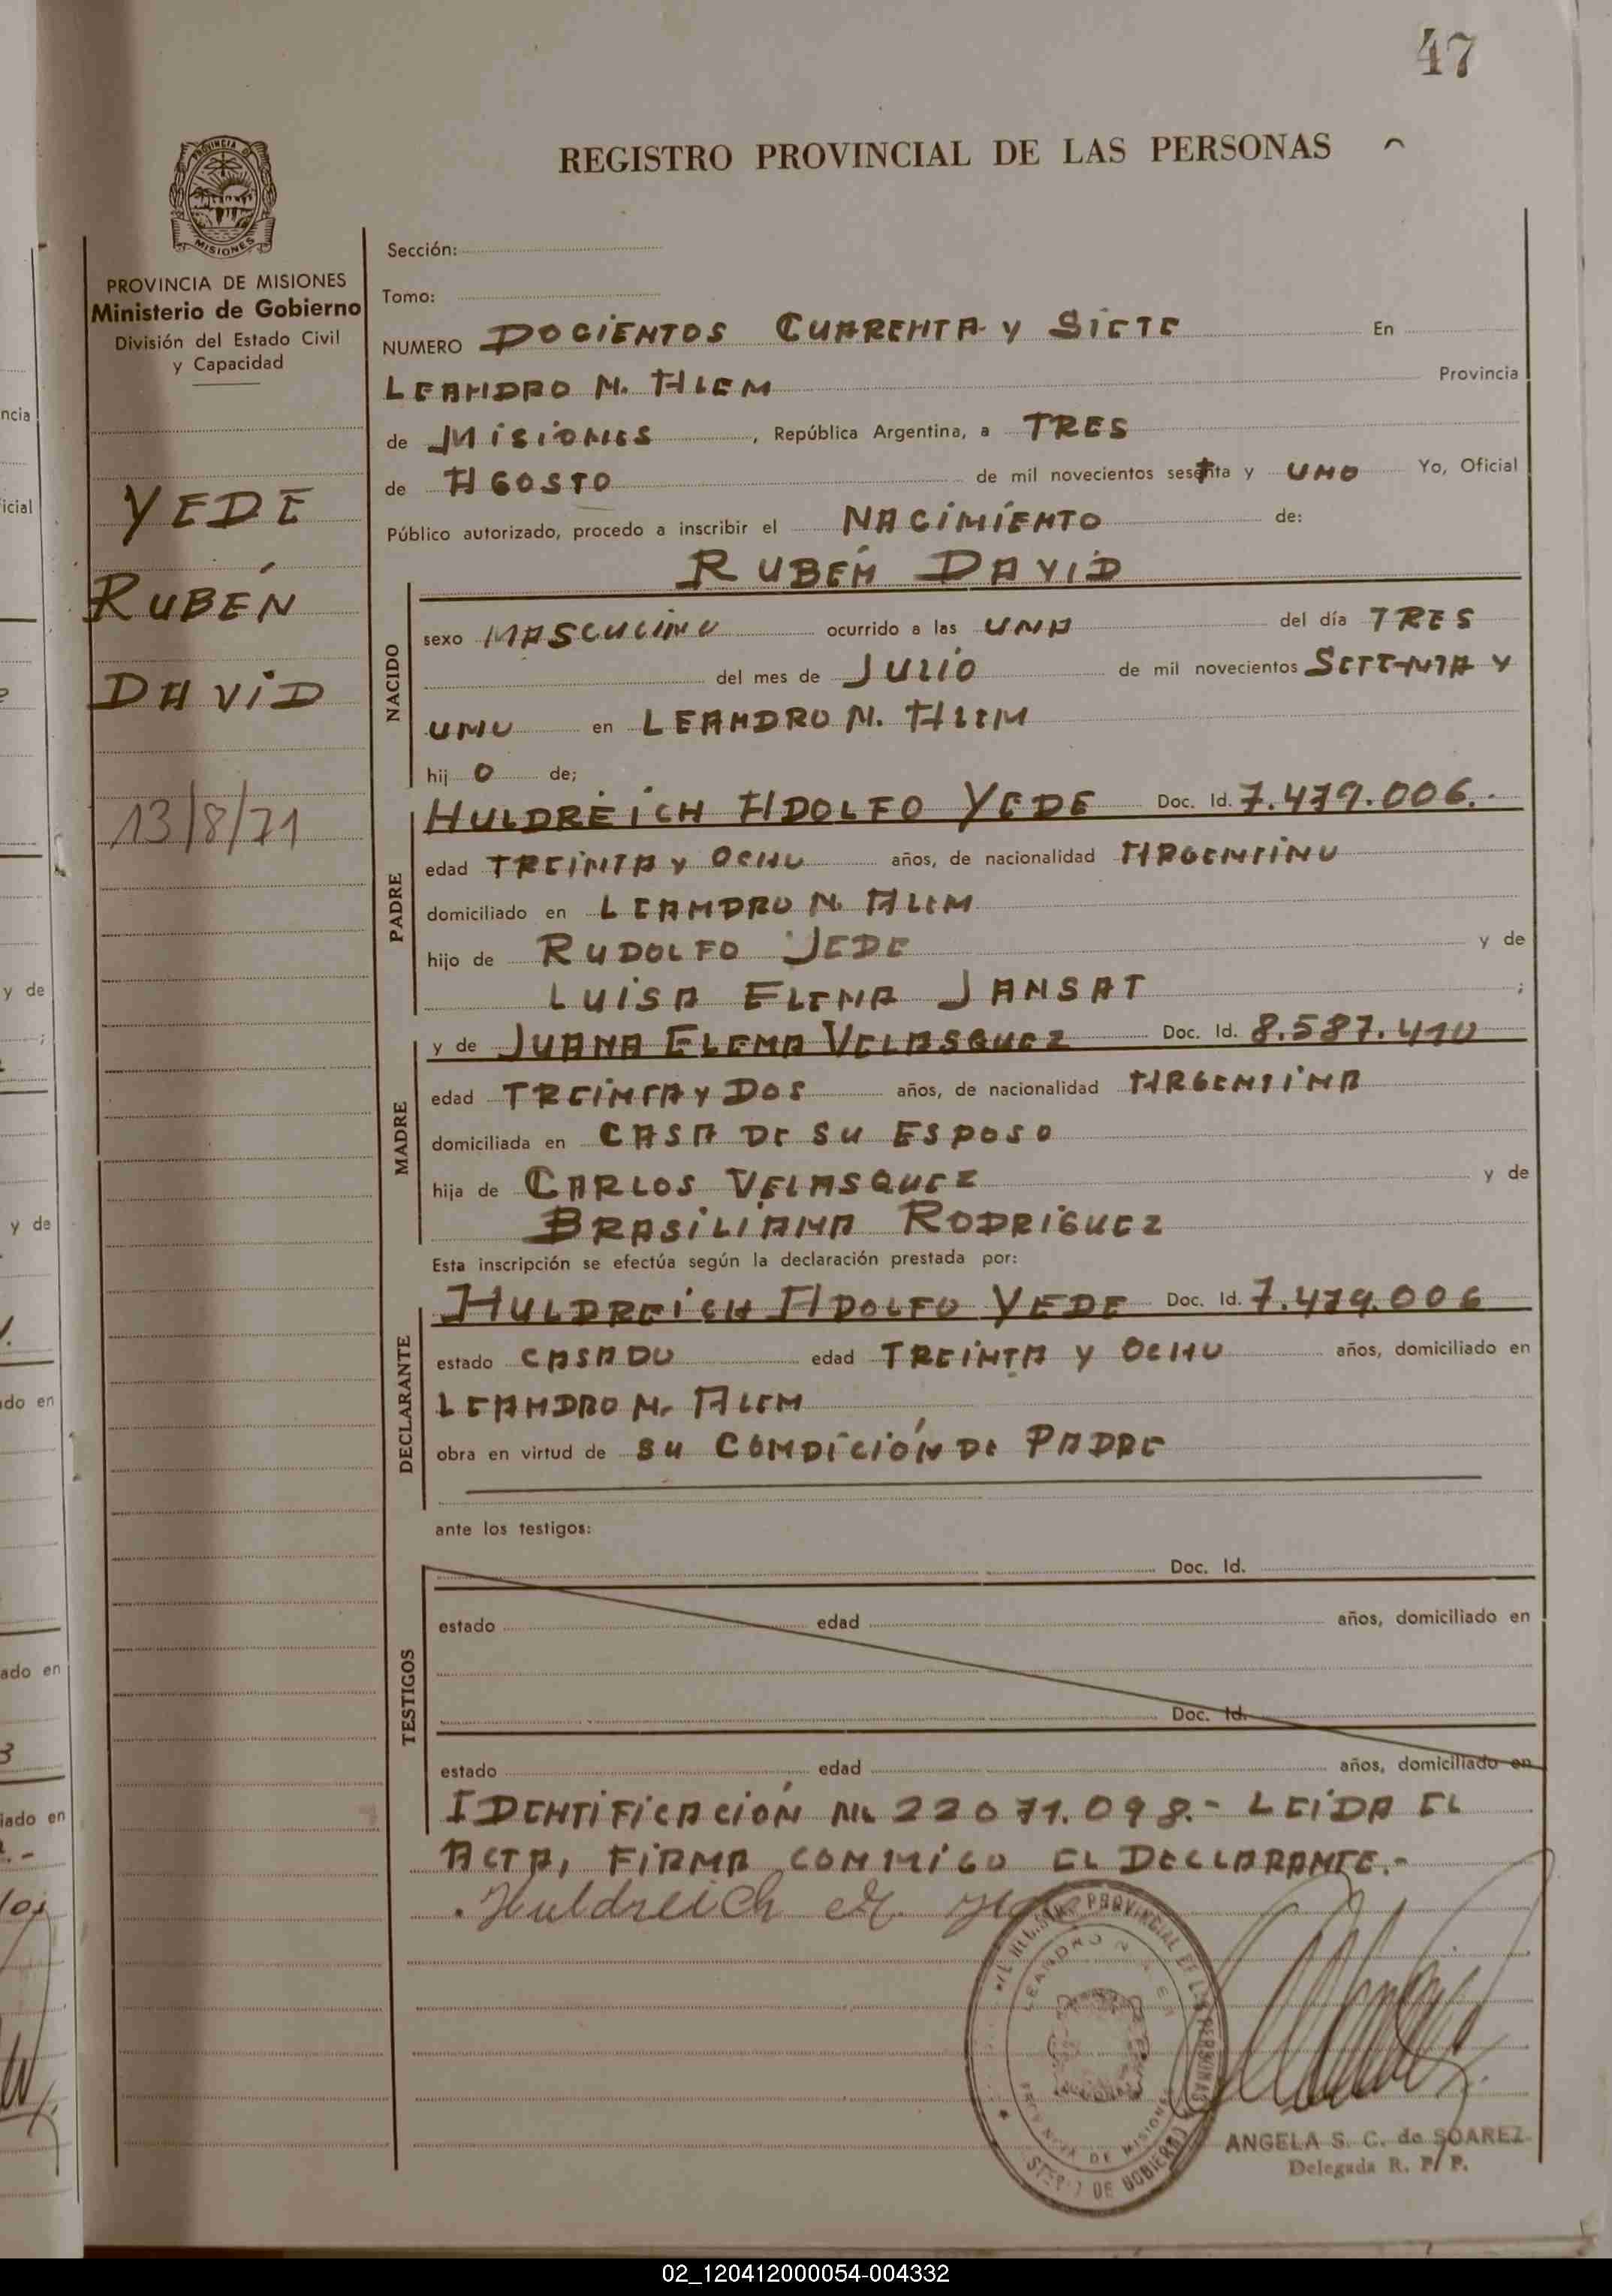 47
REGISTRO PROVINCIAL DE LAS PERSONAS
PROVINCIA DE
MISIONES
PROVINCIA DE MISIONES
Ministerio de Gobierno
División del Estado Civil
y Capacidad
YEDE
RUBÉN
DAVID
13/8/71
Sección:
Tomo:
NUMERO DOCIENTOS CUARENTA Y SIETE En
LEANDRO N. ALEM Provincia
de MISIONES, República Argentina, a TRES
de AGOSTO de mil novecientos sesetnta y UNO Yo, Oficial
Público autorizado, procedo a inscribir el NACIMIENTO de:
RUBÉN DAVID
NACIDO
sexo MASCULINO ocurrido a las UNA del día TRES
del mes de JULIO de mil novecientos SETENTA Y
UNO en LEANDRO N. ALEM
hij O de;
PADRE
HULDREICH ADOLFO YEDE Doc. Id. 7.479.006.-
edad TREINTA Y OCHO años, de nacionalidad ARGENTINO
domiciliado en LEANDRO N. ALEM
hijo de RUDOLFO JEDE y de
LUISA ELENA JANSAT ;
MADRE
y de JUANA ELENA VELASQUEZ Doc. Id. 8.587.410
edad TREINTA Y DOS años, de nacionalidad ARGENTINA
domiciliada en CASA DE SU ESPOSO
hija de CARLOS VELASQUEZ y de
BRASILIANA RODRIGUEZ
Esta inscripción se efectúa según la declaración prestada por:
DECLARANTE
HULDREICH ADOLFO YEDE Doc. Id. 7.479.006
estado CASADO edad TREINTA Y OCHO años, domiciliado en
LEANDRO N. ALEM
obra en virtud de SU CONDICIÓN DE PADRE
ante los testigos:
TESTIGOS
Doc. Id.
estado edad años, domiciliado en
Doc. Id.
estado edad años, domiciliado en
IDENTIFICACIÓN Nº 22071.098.- LEIDA EL
ACTA, FIRMA CONMIGO EL DECLARANTE.-
Huldreich A.
PROVINCIAL DE LAS PERSONAS
LEANDRO N. ALEM
PROVINCIA DE MISIONES
DE GOBIERNO
ANGELA S. C. de SOAREZ
Delegada R. P. P.
02_120412000054-004332